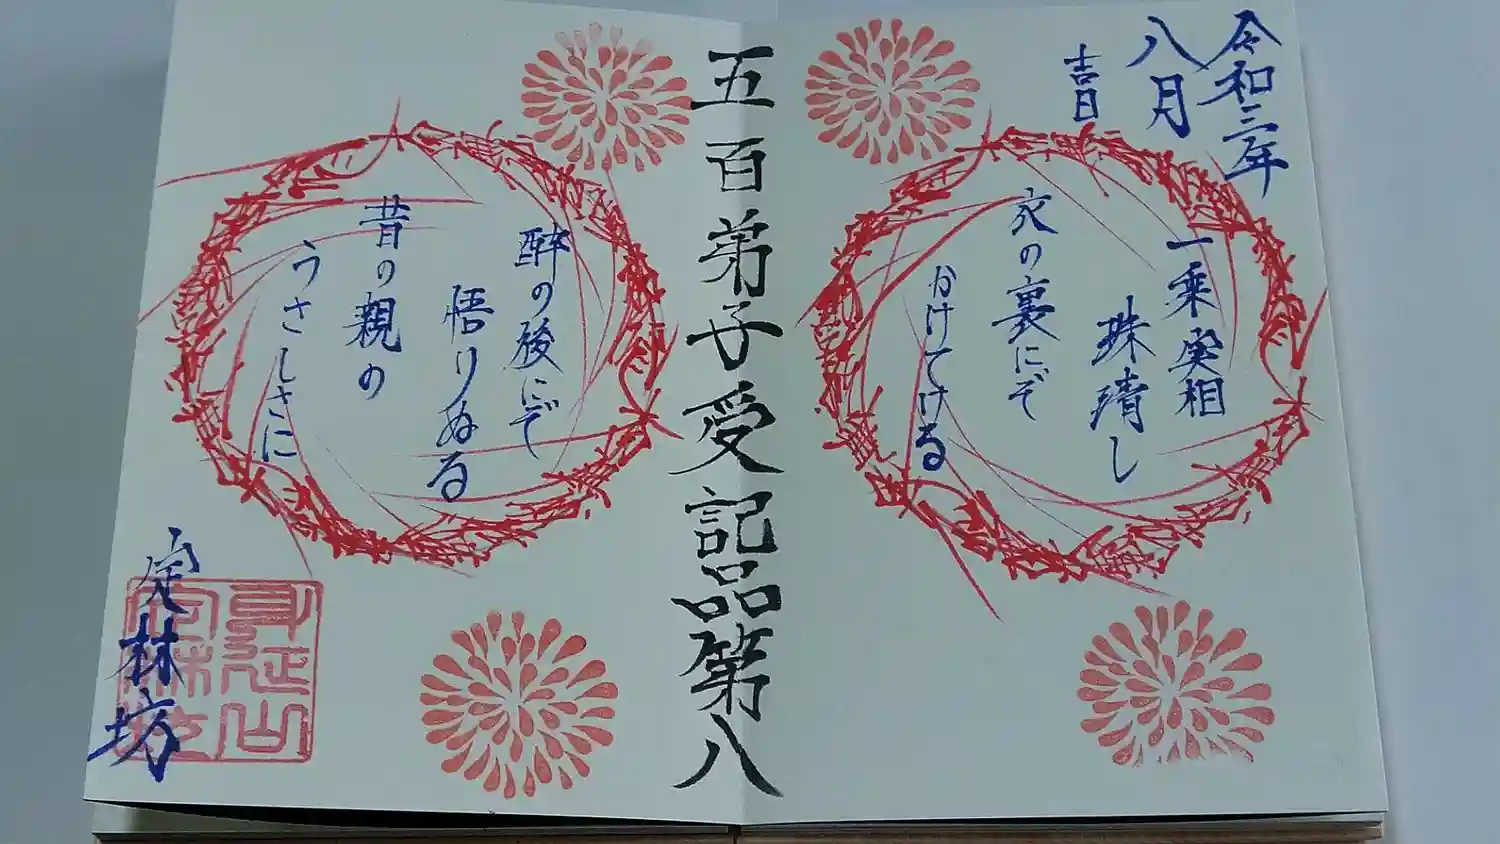 令和三年
八月
吉日
一乗実相
珠清し
衣の裏にぞ
かけてける
五百弟子受記品第八
酔の後にぞ
悟りぬる
昔の親の
うさしさに
定林坊
身延山
定林坊